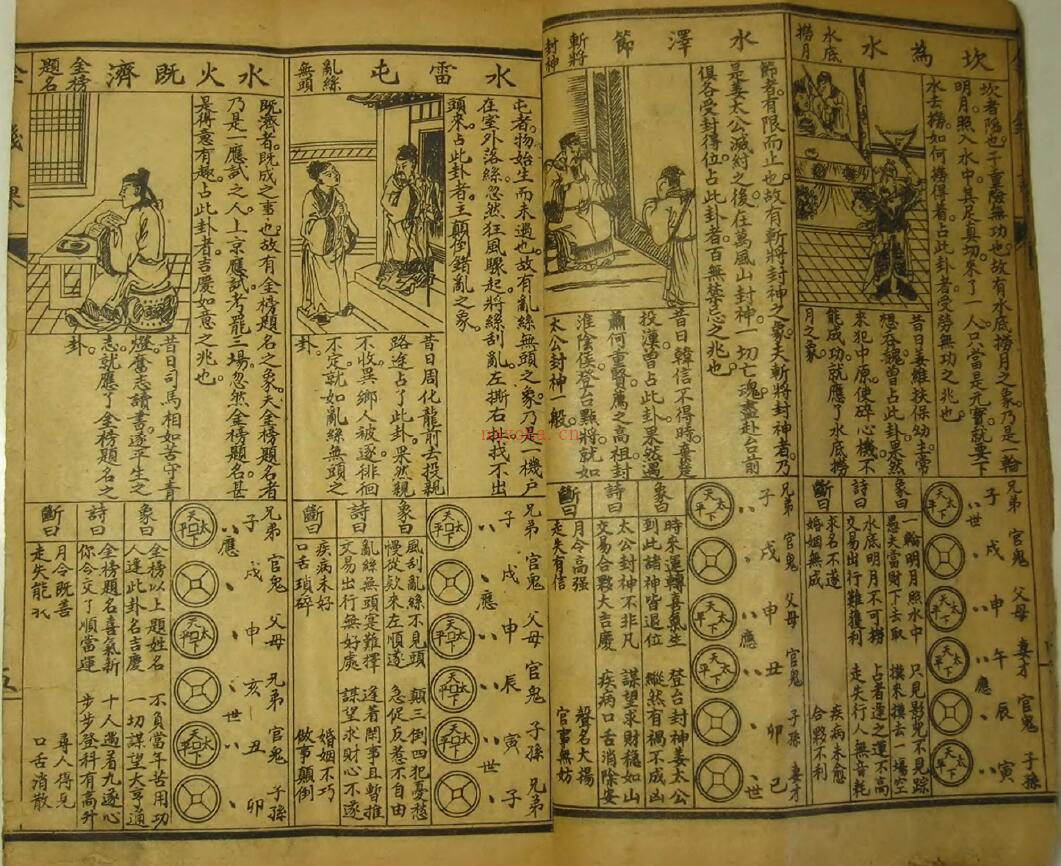 坎為水
水底
撈月
坎者陷也千重險無功也故有水底撈月之象乃是一輪
明月照入水中其是真切來了一人只當是元寶就要下
水去撈如何撈得着占此卦者受勞無功之兆也
昔日姜維扶保幼主常
想吞魏曾占此卦果然
來犯中原使碎心機不
能成功就應了水底撈
月之象
兄弟 官鬼 父母 妻才 官鬼 子孫
子 戌 申 午 辰 寅
世 應
天下太平
象曰
一輪明月照水中 只見影兒不見踪
愚夫當財下去取 摸來摸去一場空
詩曰
水底明月不可撈 占者逢之運不高
交易出行難獲利 走失行人無音耗
斷曰
求名不遂 疾病未愈
婚姻無成 合夥不利
水澤節
斬將
封神
節者有限而止也故有斬將封神之象夫斬將封神者乃
是姜太公滅紂之後在萬風山封神一切亡魂盡赴台前
俱各受封得位占此卦者百無禁忌之兆也
昔日韓信不得時棄楚
投漢曾占此卦果然遇
蕭何重賢薦之高祖封
淮陰侯登台點將就如
太公封神一般
兄弟 官鬼 父母 官鬼 子孫 妻才
子 戌 申 丑 卯 巳
應 世
天下太平
象曰
時來運轉喜氣生 登台封神姜太公
到此諸神皆退位 縱然有禍不成凶
詩曰
太公封神不非凡 謀望求財穩如山
交易合夥大吉慶 疾病口舌消除安
斷曰
月令高强 聲名大揚
走失有信 官事無妨
水雷屯
亂絲
無頭
屯者物始生而未通也故有亂絲無頭之象乃是一機户
在室外落絲忽然狂風驟起將絲刮亂左撕右扯找不出
頭來占此卦者主顛倒錯亂之象
昔日周化龍前去投親
路途占了此卦果然親
不收異鄉人被逐徘徊
不定就如亂絲無頭之
卦
兄弟 官鬼 父母 官鬼 子孫 兄弟
子 戌 申 辰 寅 子
應 世
天下太平
象曰
風刮亂絲不見頭 顛三倒四犯憂愁
慢從欵來左順遂 急促反惹不自由
詩曰
亂絲無頭寔難擇 逢着閙事且暫推
交易出行無好處 謀望求財心不遂
斷曰
疾病未好 婚姻不巧
口舌瑣碎 做事顛倒
水火既濟
金榜
題名
既濟者既成之事也故有金榜題名之象夫金榜題名者
乃是一應試之人上京應試考罷三場忽然金榜題名甚
是得意有趣占此卦者吉慶如意之兆也
昔日司馬相如苦守青
燈奮志讀書遂平生之
志就應了金榜題名之
卦
兄弟 官鬼 父母 兄弟 官鬼 子孫
子 戌 申 亥 丑 卯
應 世
天下太平
象曰
金榜以上題姓名 不負當年苦用功
人逢此卦名吉慶 一切謀望大亨通
詩曰
金榜題名喜氣新 十人遇着九遂心
你令交了順當運 步步登科有高升
斷曰
月令既善 尋人得見
走失能 口舌消散
五
nayona.cn